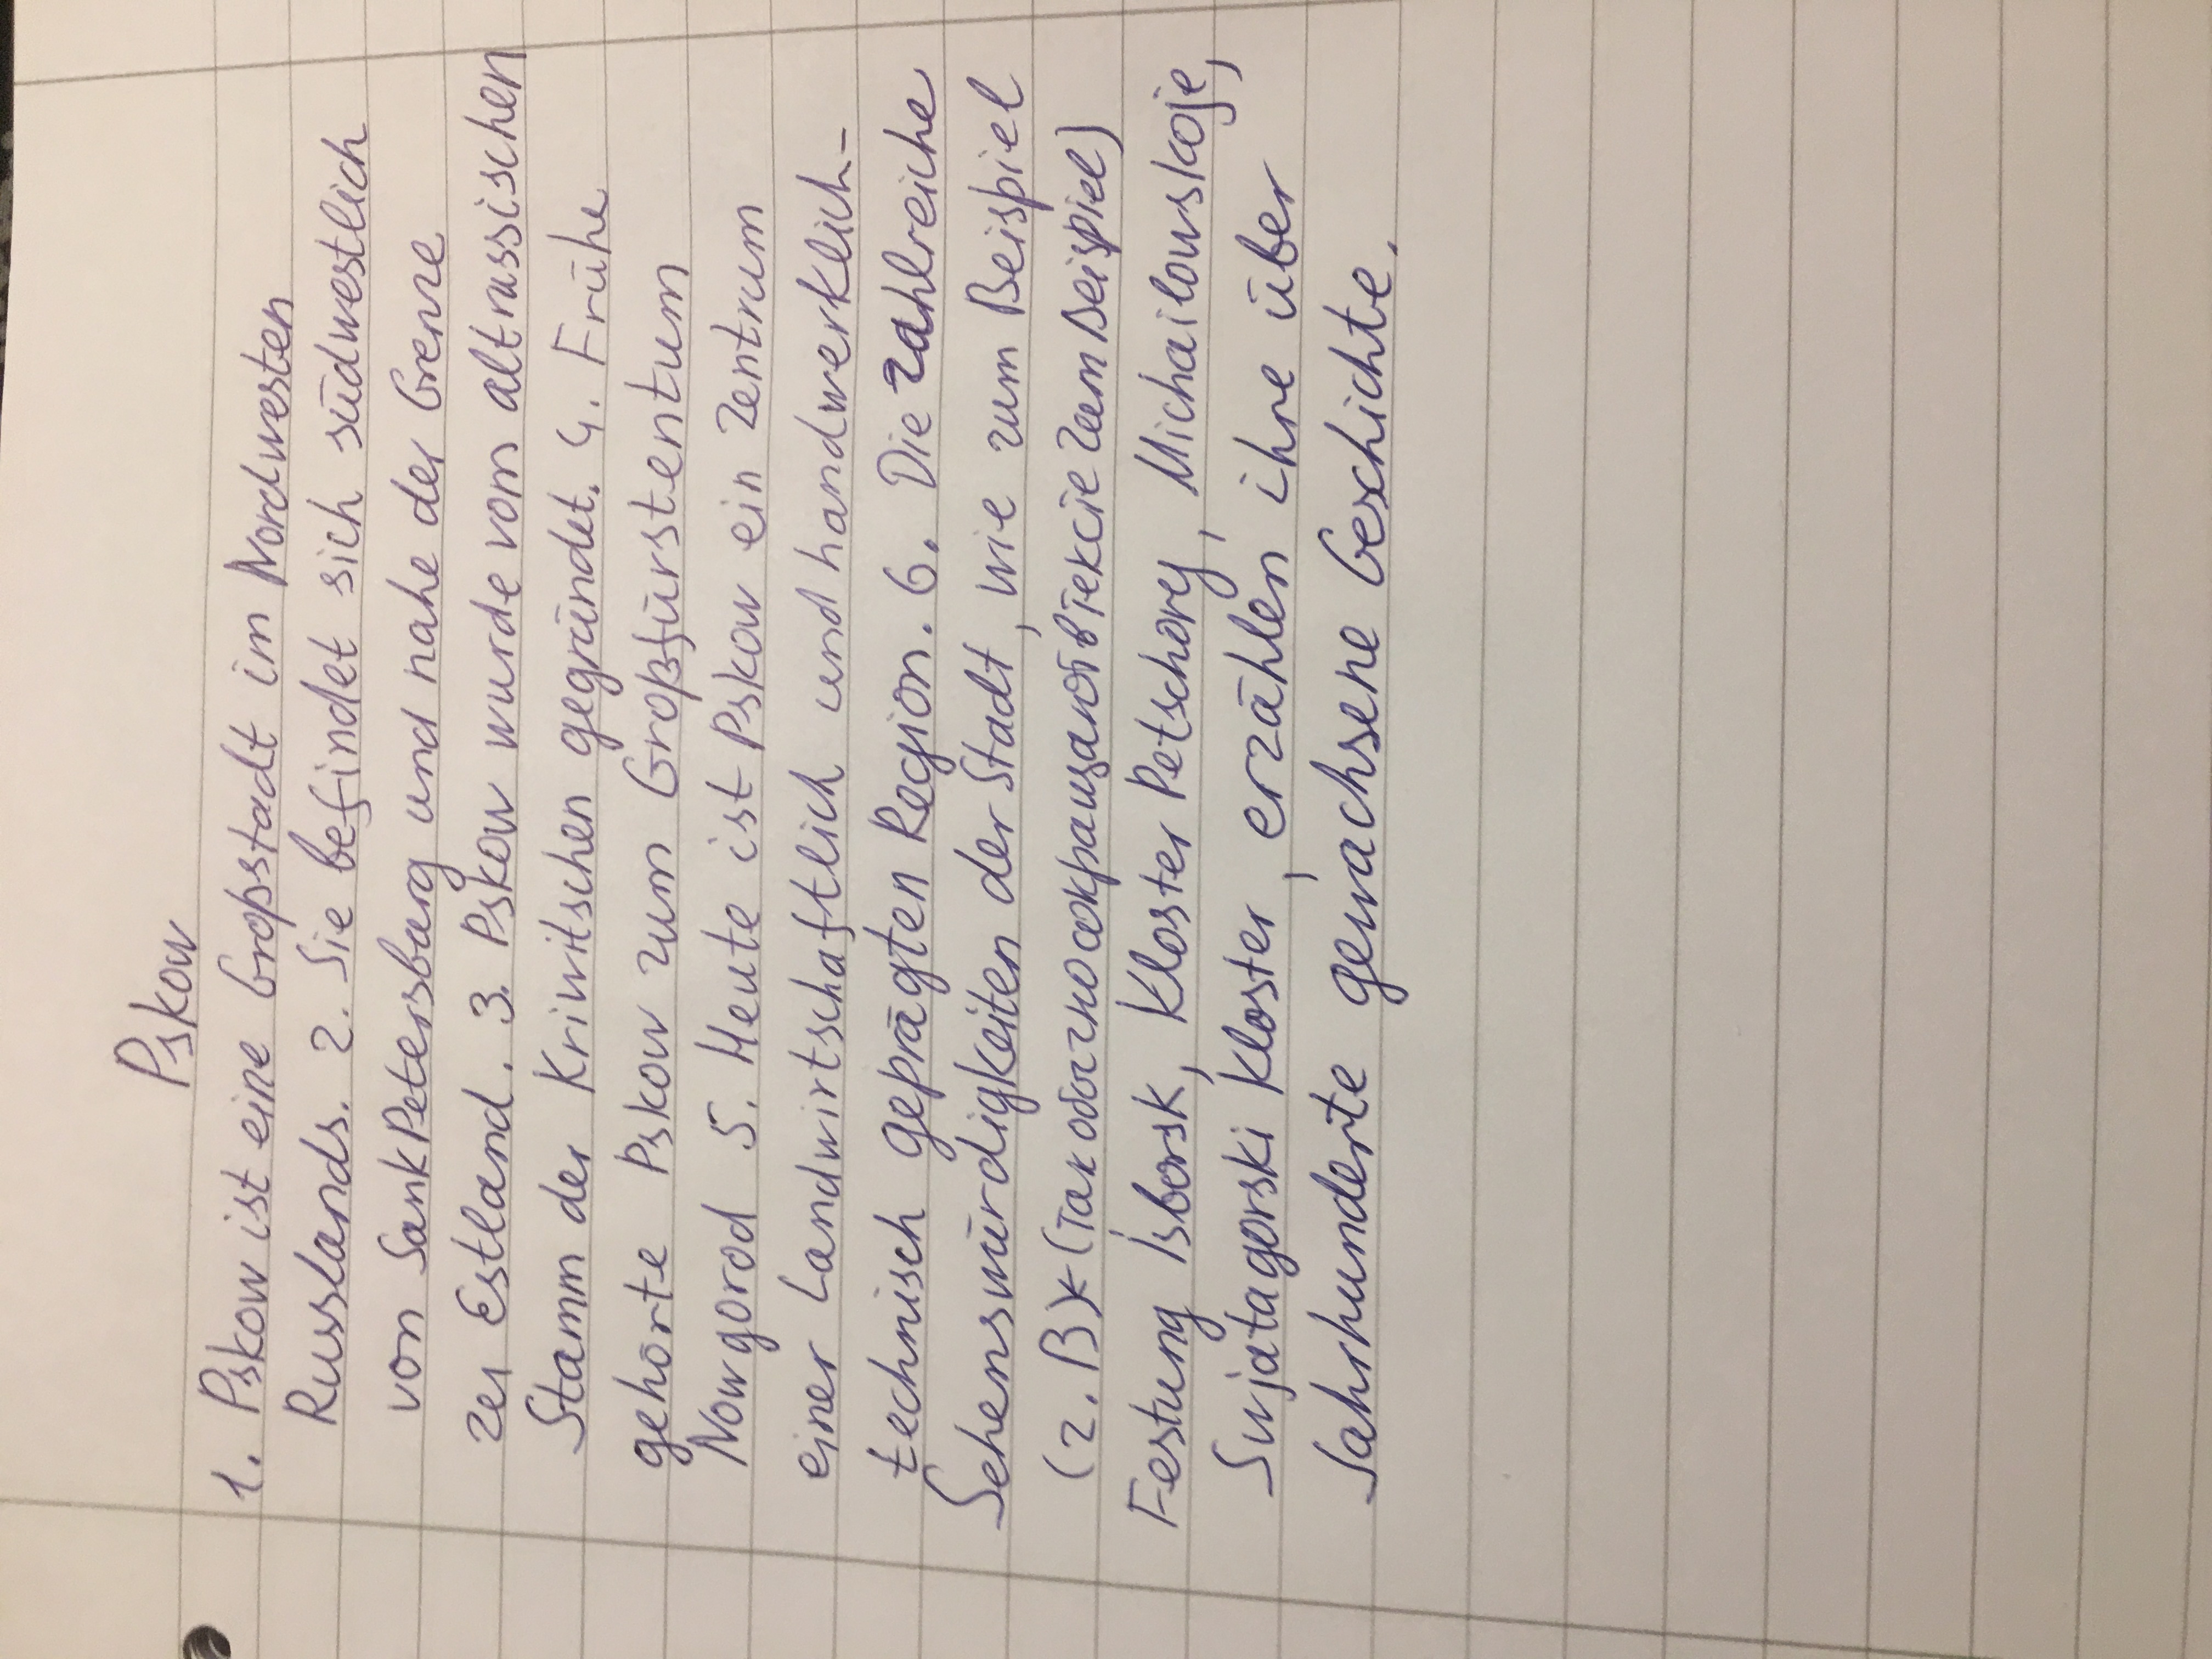 Pskow
1. Pskow ist eine Großstadt im Nordwesten
Russlands. 2. Sie befindet sich südwestlich
von Sank Petersburg und nahe der Grenze
zu Estland. 3. Pskow wurde vom altrussischen
Stamm der Kriwitschen gegründet. 4. Frühe
gehörte Pskow zum Großfürstentum
Nowgorod 5. Heute ist Pskow ein Zentrum
einer Landwirtschaftlich und handwerklich-
technisch geprägten Region. 6. Die zahlreiche
Sehenswürdigkeiten der Stadt, wie zum Beispiel
(z. B)* (так обычно сокращают в тексте zum Beispiel)
Festung Isborsk, Kloster Petschory, Michailowskoje,
Swjatagorski Kloster, erzählen ihre über
Jahrhunderte gewachsene Geschichte.